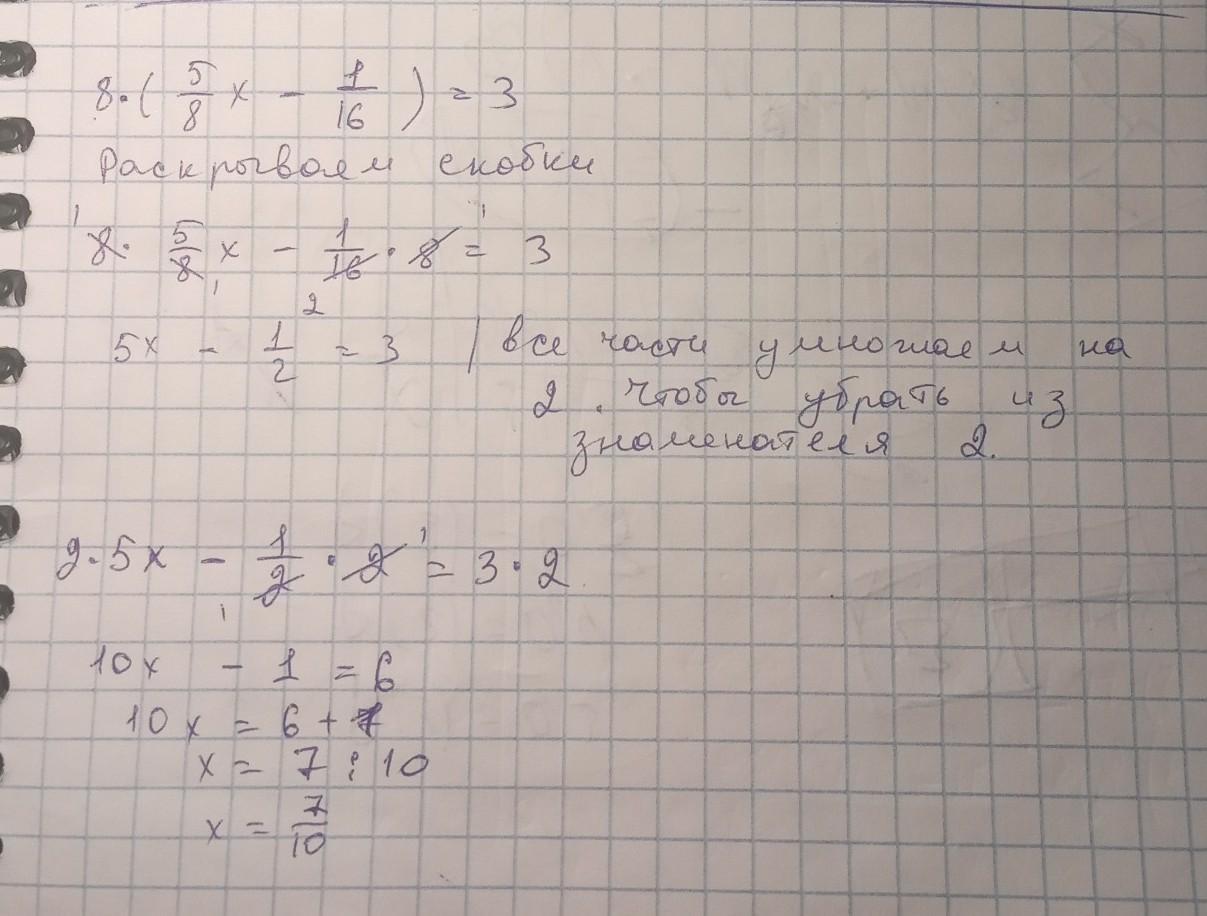 8·( 5/8 x - 1/16 ) = 3
Раскрываем скобки
¹8· 5/8₁ x - 1/16₂ · 8¹ = 3
5x - 1/2 = 3 | все части умножаем на
2 . Чтобы убрать из
знаменателя 2.
2·5x - 1/2₁ · 2¹ = 3·2
10x - 1 = 6
10x = 6 + 1
x = 7 : 10
x = 7/10